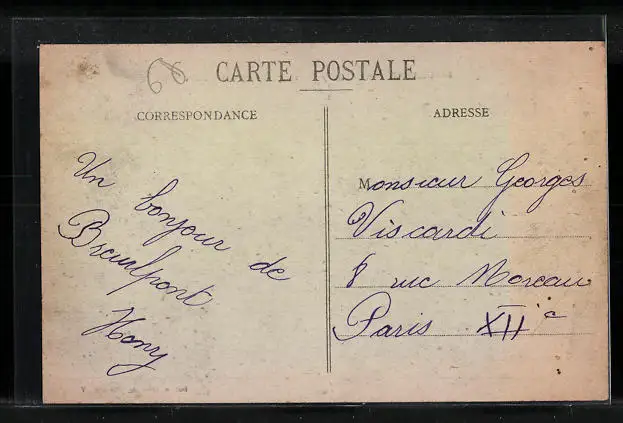 CARTE POSTALE
CORRESPONDANCE
ADRESSE
Un bonjour de
Breuilpont
Monsieur Georges
Viscardi
8 rue Moreau
Paris XIIe